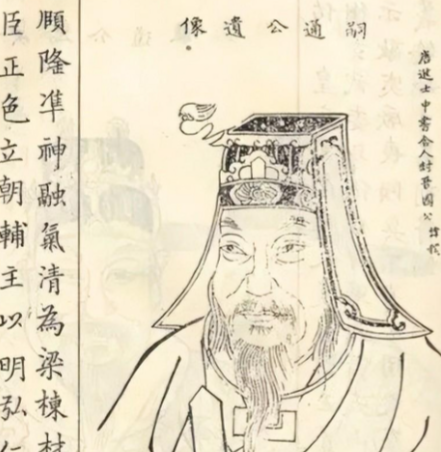 嗣通公遺像
唐進士中書舍人封晉國公
隆準神融氣清為梁棟材
臣正色立朝輔主以明弘仁